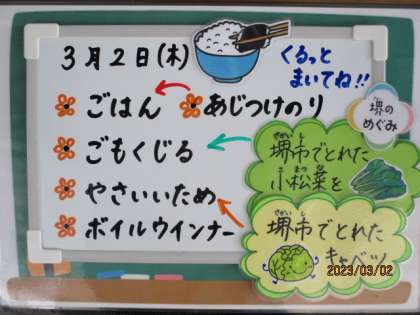 3月2日(木)
くるっと
まいてね!!
ごはん あじつけのり
堺の
めぐみ
ごもくじる
さかいし
堺市でとれた
こまつな
小松菜を
やさいいため
ボイルウインナー
さかいし
堺市でとれた
キャベツ
2023/03/02